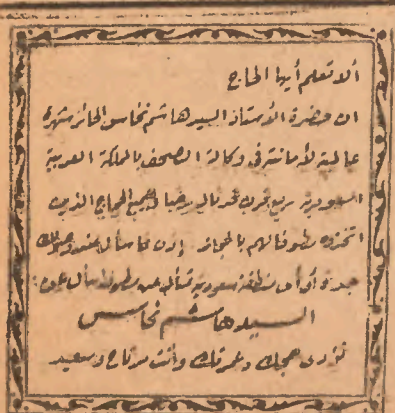 ألا تعلم أيها الحاج
ان حضرة الأستاذ السيد هاشم نحاس الحائز شهرة
عالمية لأمانته في وكالة الصحف بالمملكة العربية
السعودية ربع قرن لجميع الحجاج الذين
اتخذوه مطوفا لهم بالحجاز إذن فاسأل عند وصولك
جدة أو أى منطقة سعودية تسأل عن مطوفك اسأل عن:
السيد هاشم نحاس
تؤدى حجك وعمرتك وأنت مرتاح وسعيد